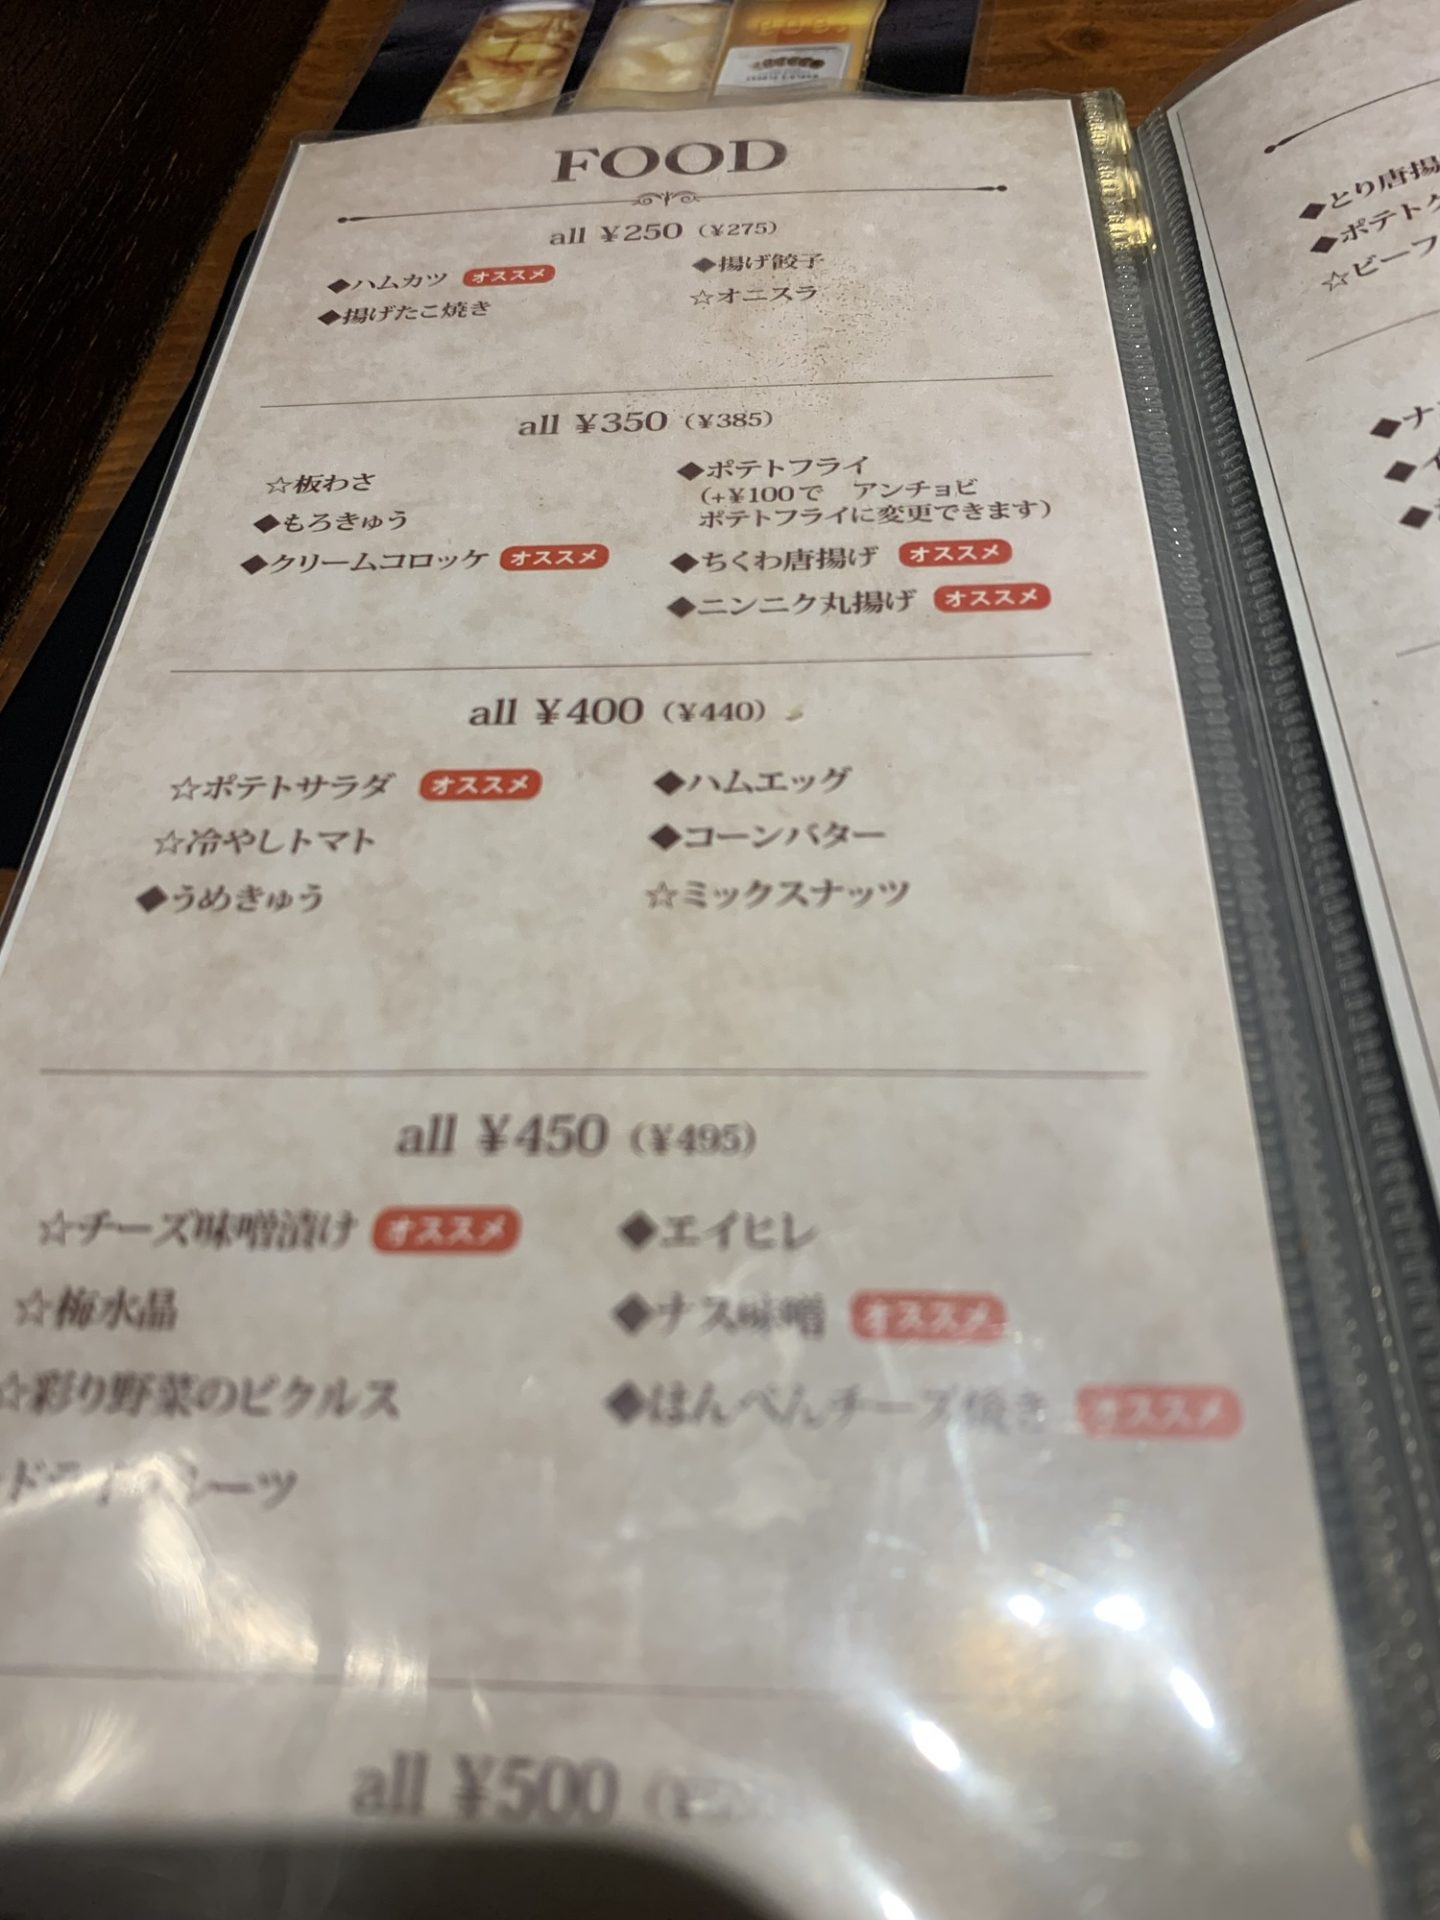 FOOD
all ¥250 (¥275)
◆ハムカツ オススメ
◆揚げたこ焼き
◆揚げ餃子
☆オニスラ
all ¥350 (¥385)
☆板わさ
◆もろきゅう
◆クリームコロッケ オススメ
◆ポテトフライ
(+¥100で アンチョビ
ポテトフライに変更できます)
◆ちくわ唐揚げ オススメ
◆ニンニク丸揚げ オススメ
all ¥400 (¥440)
☆ポテトサラダ オススメ
☆冷やしトマト
◆うめきゅう
◆ハムエッグ
◆コーンバター
☆ミックスナッツ
all ¥450 (¥495)
☆チーズ味噌漬け オススメ
☆梅水晶
☆彩り野菜のピクルス
ドライフルーツ
◆エイヒレ
◆ナス味噌 オススメ
◆はんぺんチーズ焼き オススメ
all ¥500
◆とり唐揚
◆ポテト
☆ビーフ
◆ナ
◆イ